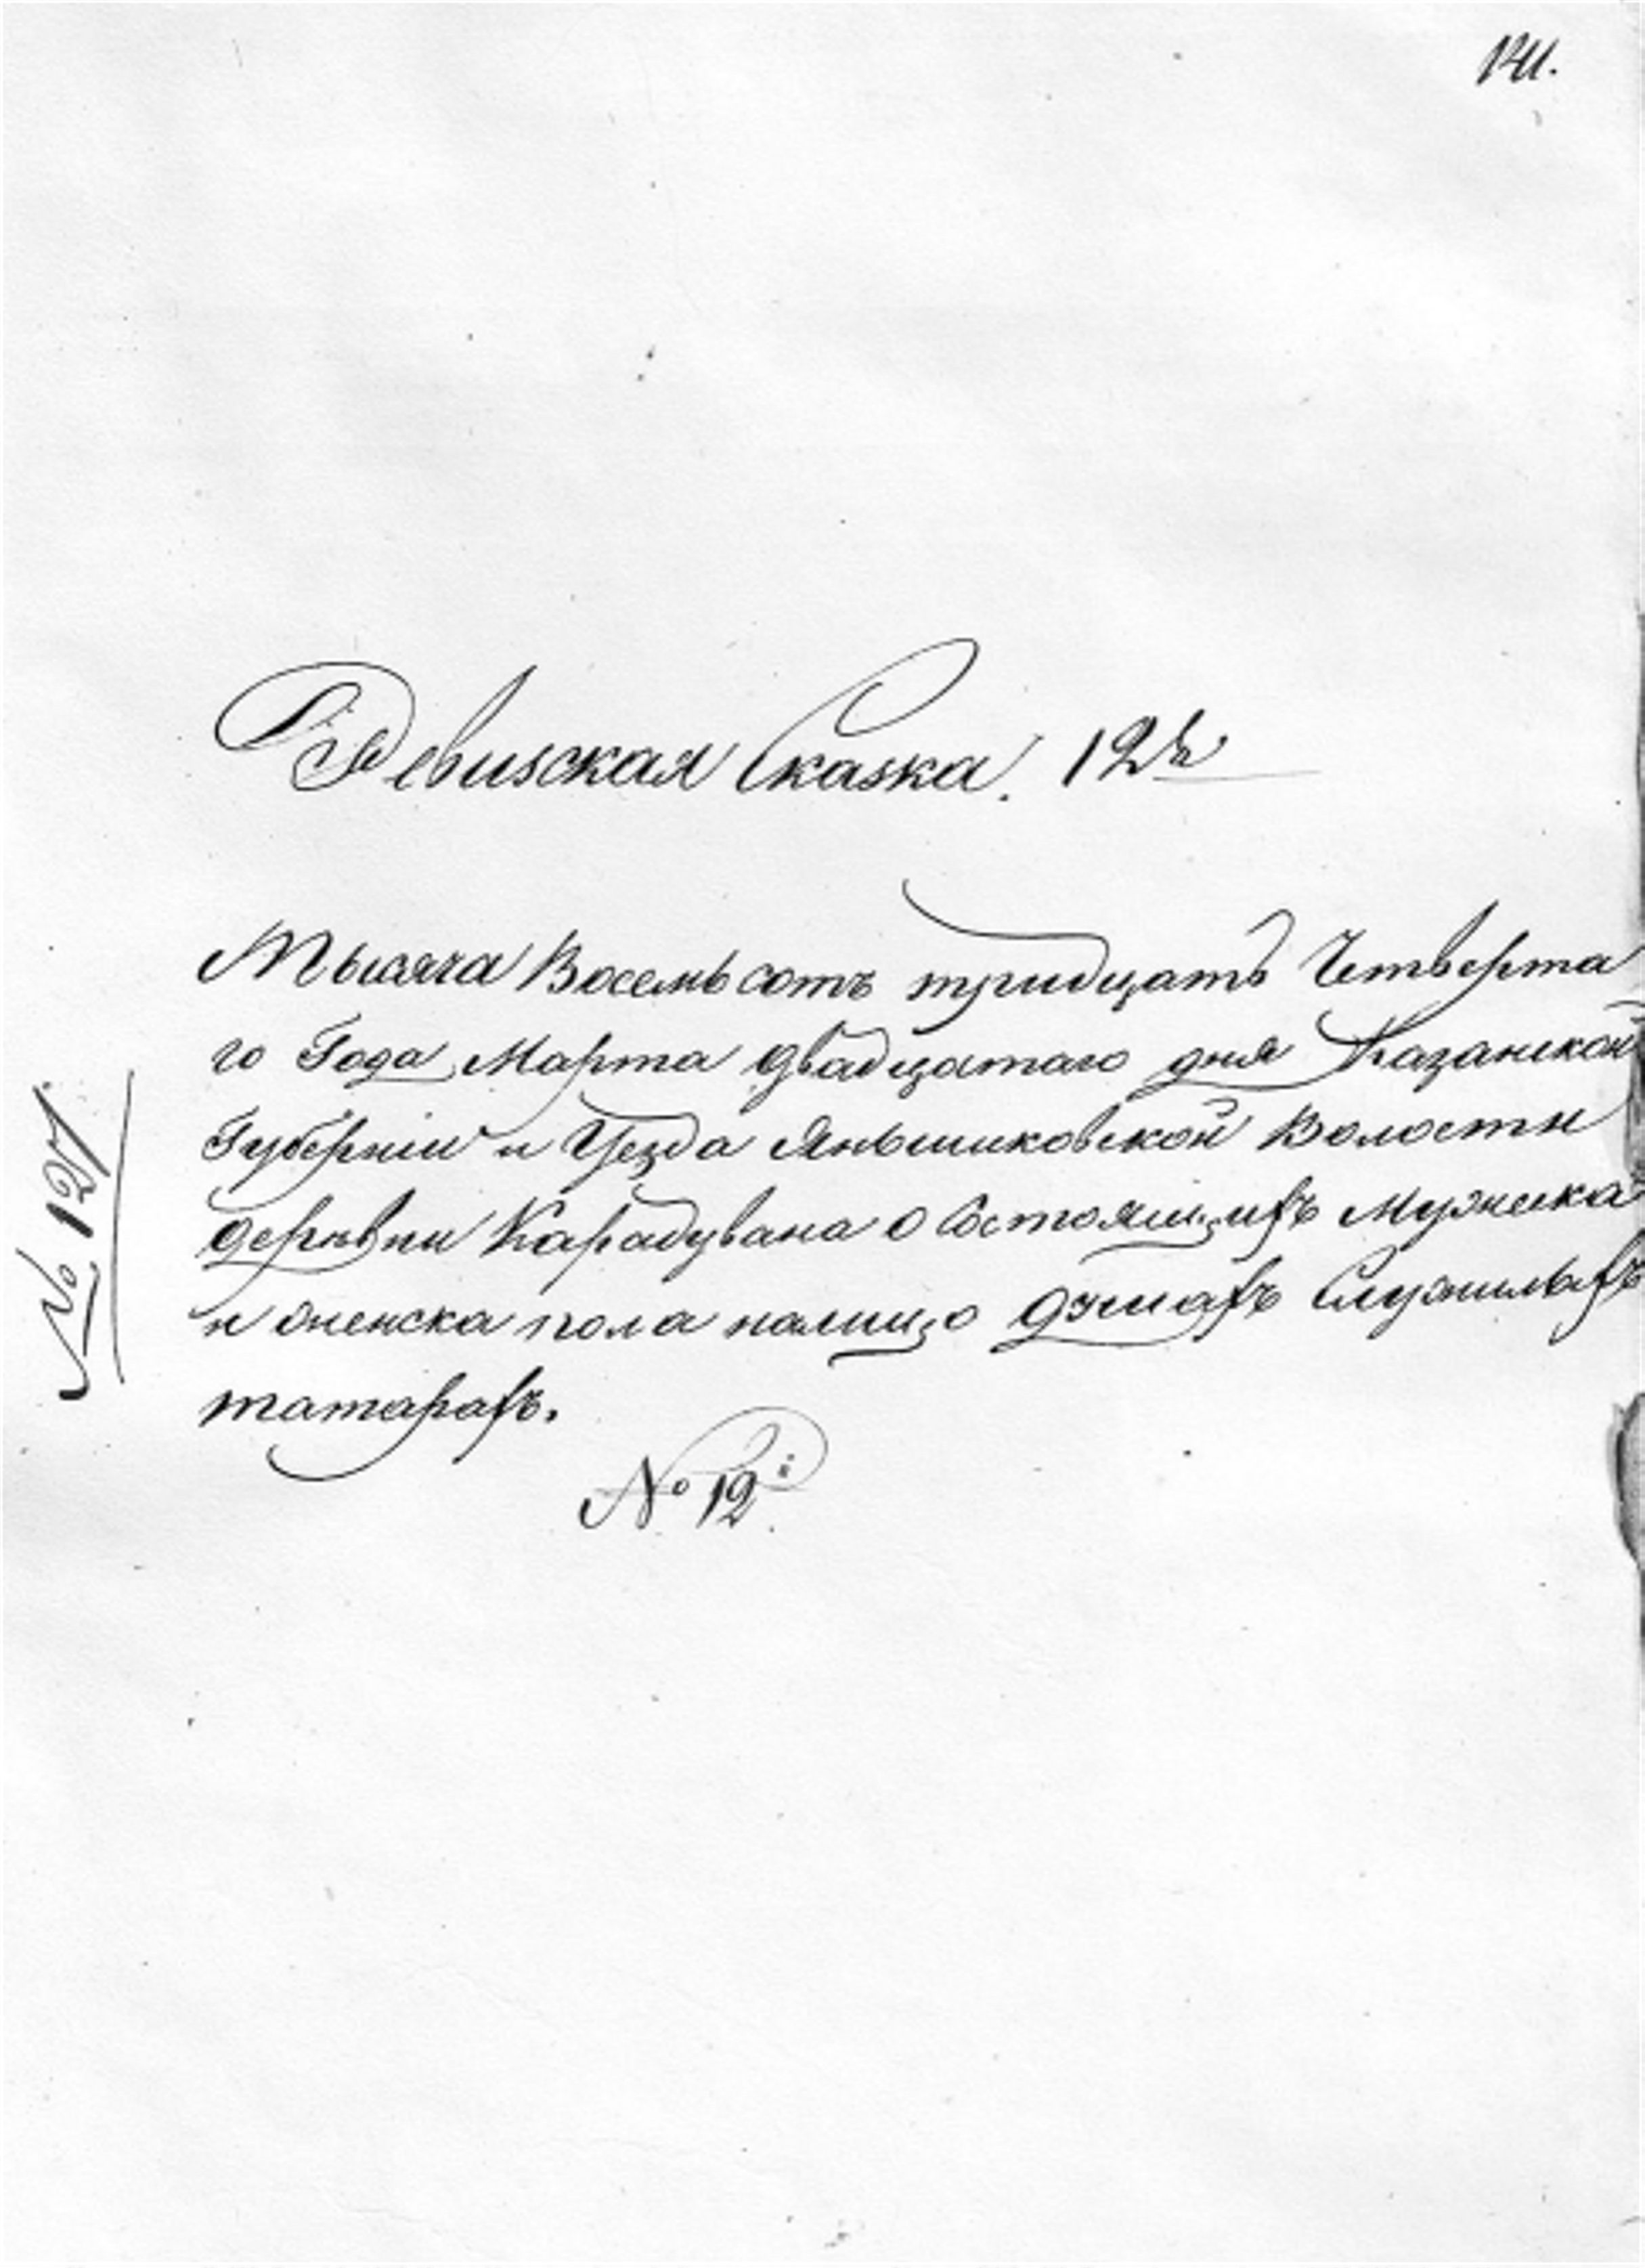 Ревизская Сказка. 12я
Тысяча Восемьсотъ тридцать Четверта
го Года Марта двадцатаго дня Казанской
Губерніи и Уезда Яньшиковской Волости
деревни Карадувана о Состоящихъ Мужеска
и женска пола налицо душахъ Служилыхъ
татарахъ.
№ 12й
№ 127.